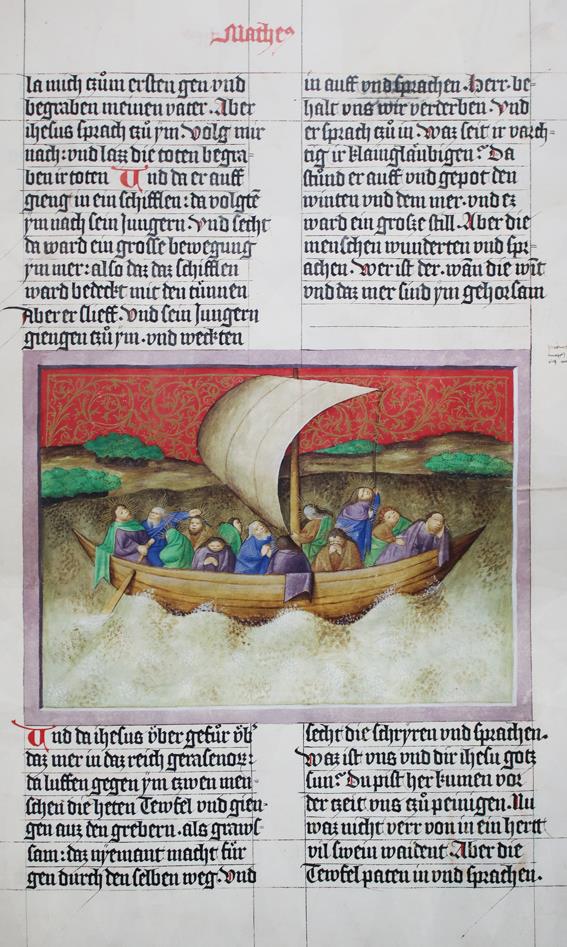 Mathe⁹
la mich czům ersten gen vnd
begraben meinen vater. Aber
ihesus sprach czů ym. Volg mir
nach: vnd laz die toten begra-
ben ir toten Und da er auff
gieng in ein schifflen: da volgtē
ym nach sein Jungern. Vnd secht
da ward ein grosse bewegung
ym mer: also daz daz schifflen
ward bedeckt mit den tünnen
Aber er slieff. Vnd sein Jungern
giengen czů ym. vnd weckten
in auff vnd sprachen. Herr. be-
halt vns wir verderben. Vnd
er sprach czů in Waz seit ir varch-
tig ir klainglaübigen? Da
stůnd er auff vnd gepot den
winten vnd dem mer. vnd ez
ward ein grosze still. Aber die
menschen wunderten vnd spr-
achen. Wer ist der. wān die wīt
vnd daz mer sind ym gehorsam
Und da ihesus über gefůr üb
daz mer in daz reich gerasenorz:
da luffen gegen ym czwen men-
schen die heten Tewfel vnd gien-
gen auz den grebern. als graws-
sam: daz nyemant macht für
gen durch den selben weg. Vnd
secht die schryren vnd sprachen.
Waz ist vns vnd dir ihesu gotz
sun? Du pist her kumen vor
der czeit vns czů peinigen. Nu
waz nicht verr von in ein hertt
vil swein waident. Aber die
Tewfel paten in vnd sprachen.